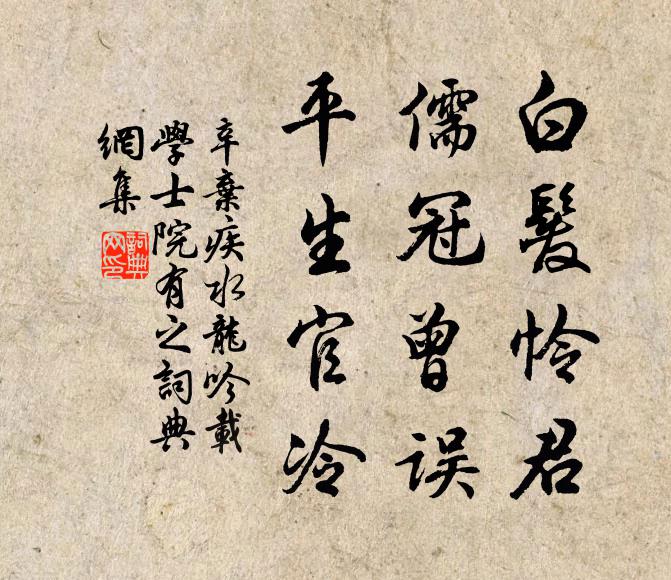 白髮怜君
儒冠曾误
平生官冷
辛棄疾水龍吟載
學士院有之詞典
網集
詞典
网印